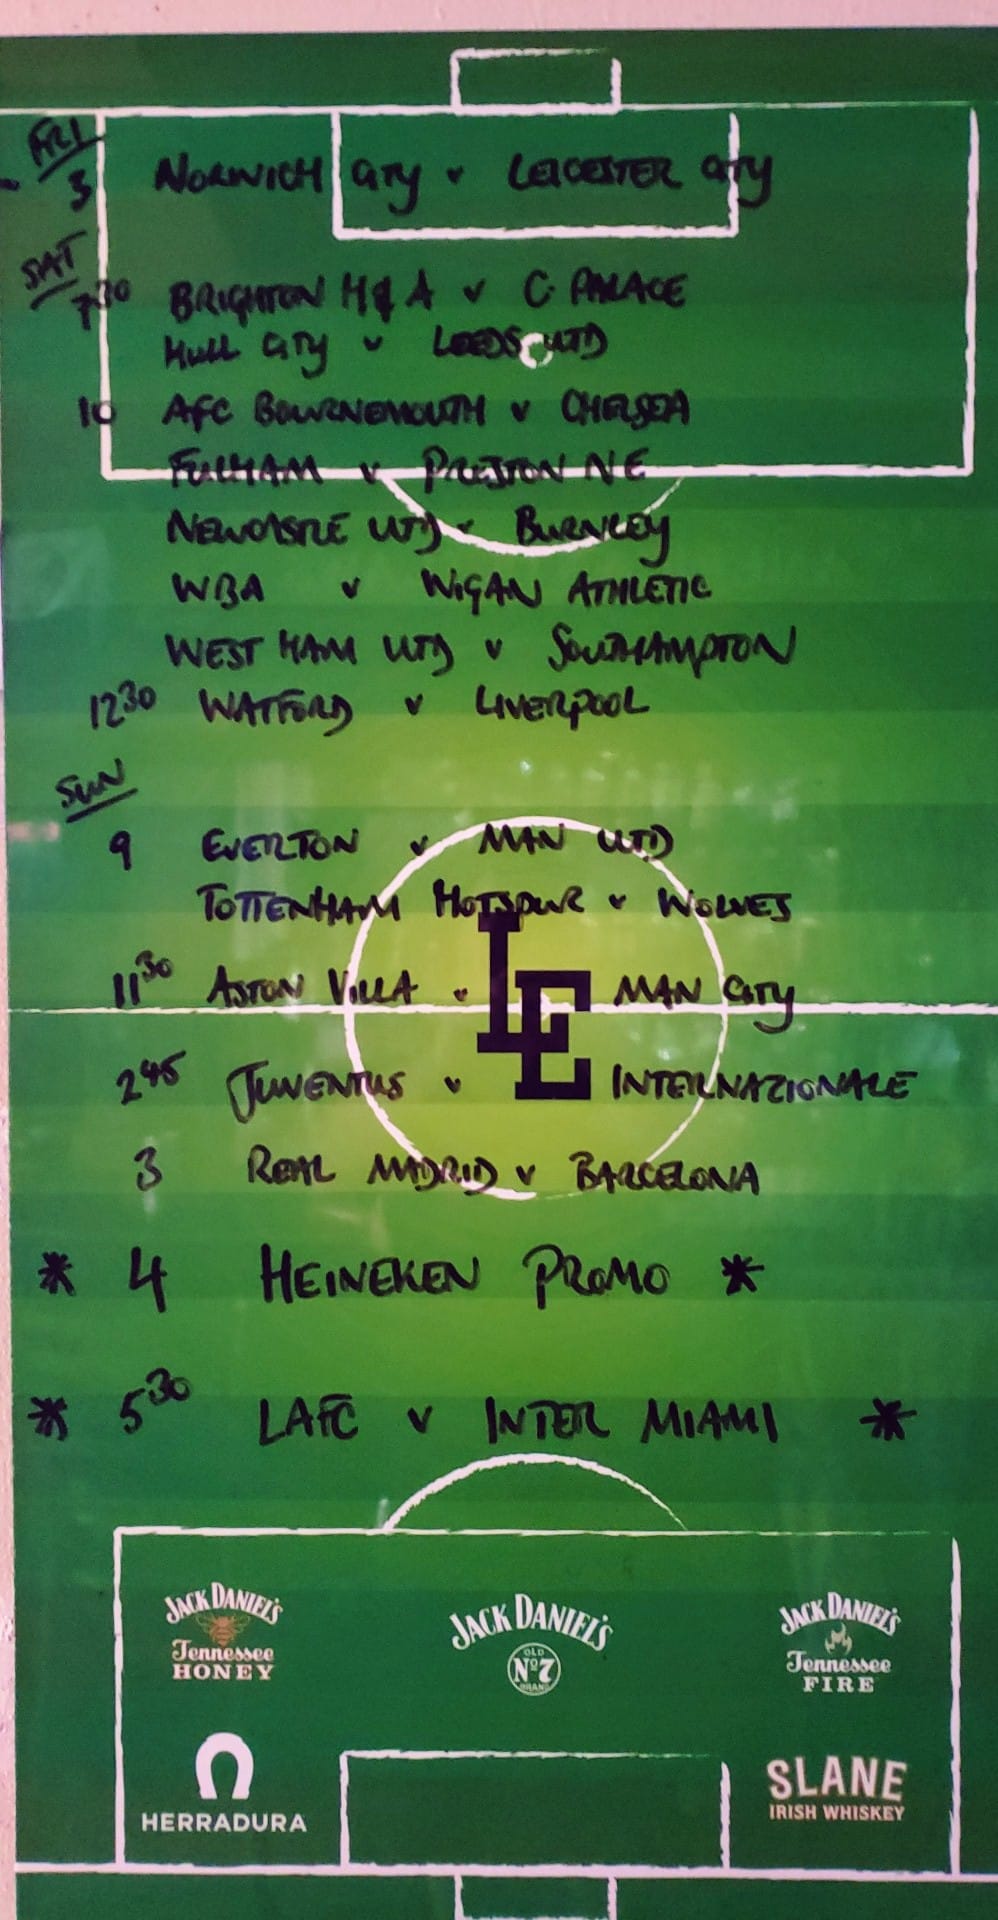 FRI
3 NORWICH CITY v LEICESTER CITY
SAT
7 30 BRIGHTON H & A v C. PALACE
HULL CITY v LEEDS UTD
10 AFC BOURNEMOUTH v CHELSEA
FULHAM v PRESTON N E
NEWCASTLE UTD v BURNLEY
WBA v WIGAN ATHLETIC
WEST HAM UTD v SOUTHAMPTON
12 30 WATFORD v LIVERPOOL
SUN
9 EVERTON v MAN UTD
TOTTENHAM HOTSPUR v WOLVES
11 30 ASTON VILLA v MAN CITY
LE
2 45 JUVENTUS v INTERNAZIONALE
3 REAL MADRID v BARCELONA
* 4 HEINEKEN PROMO *
* 5 30 LAFC v INTER MIAMI *
JACK DANIEL'S
Tennessee
HONEY
JACK DANIEL'S
OLD
Nº7
BRAND
JACK DANIEL'S
Tennessee
FIRE
HERRADURA
SLANE
IRISH WHISKEY